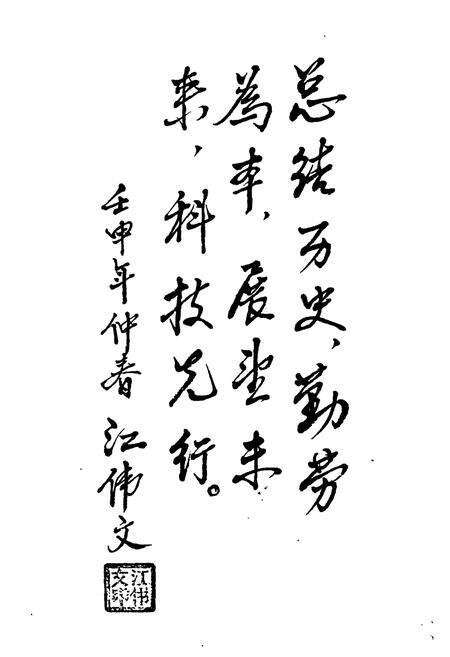 总结历史、勤劳
為本，展望未
来，科技先行。
壬申年仲春 江伟文
江伟
文